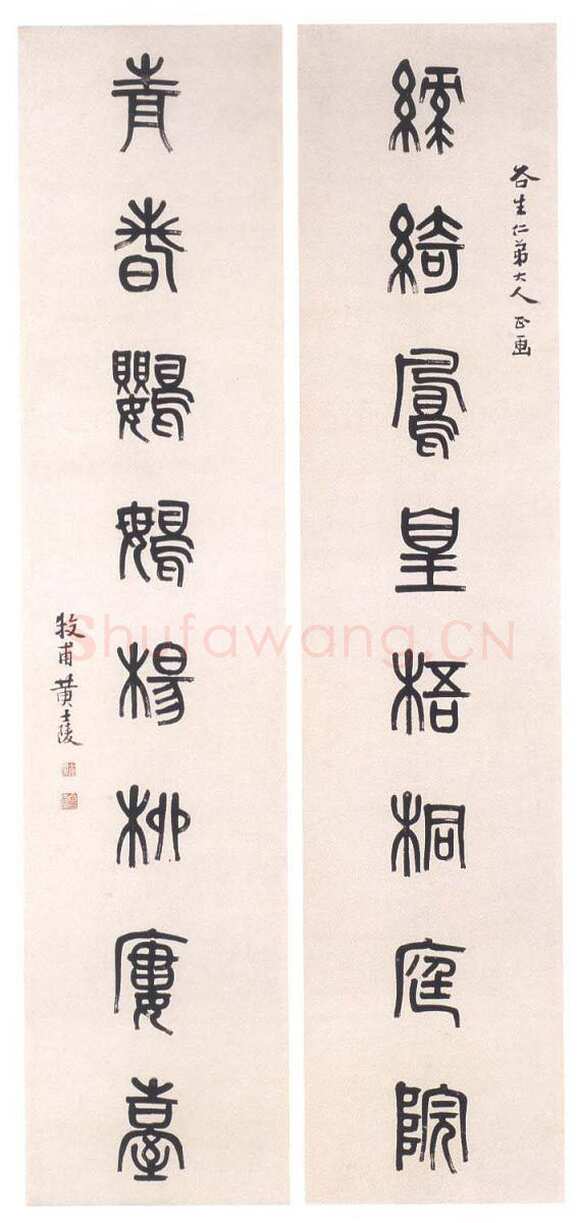 谷生仁弟大人正画
綠綺鳳皇梧桐庭院
青春鸚䳇楊柳廔臺
牧甫黄士陵
Shufawang.CN